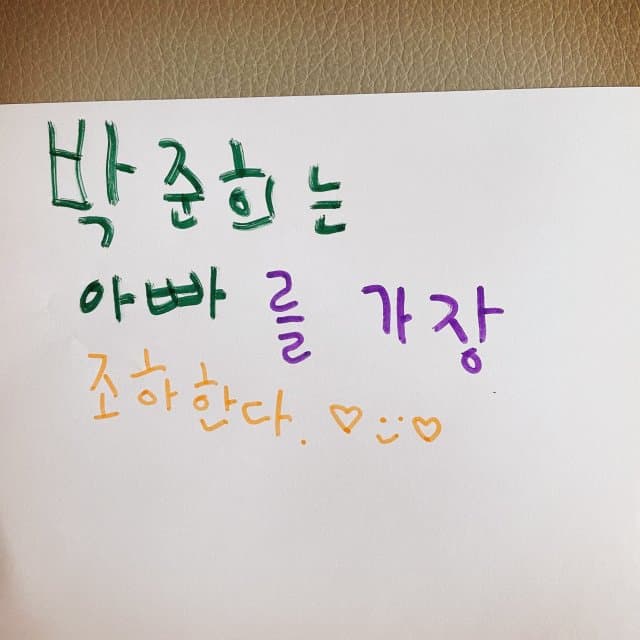 박준희는
아빠를 가장
조하한다. ♡ :) ♡